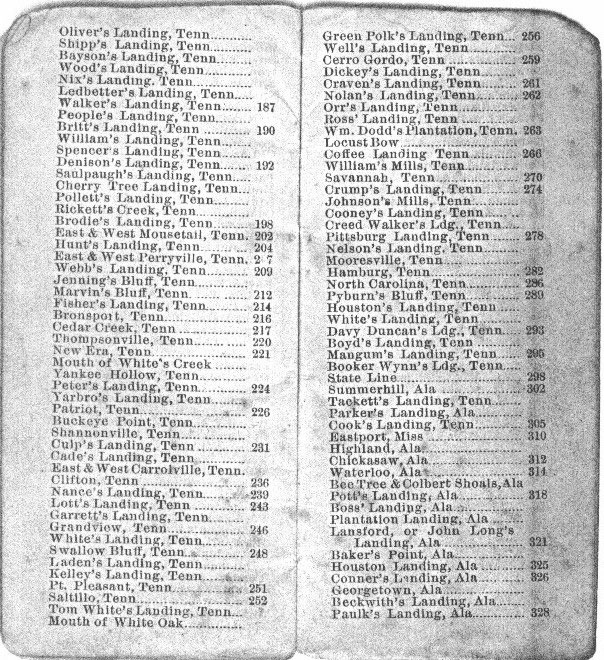 Oliver's Landing, Tenn..........
Shipp's Landing, Tenn..........
Bayson's Landing, Tenn..........
Wood's Landing, Tenn..........
Nix's Landing. Tenn..........
Ledbetter's Landing, Tenn....
Walker's Landing, Tenn...... 187
People's Landing, Tenn........
Britt's Landing, Tenn .......... 190
William's Landing, Tenn.......
Spencer's Landing, Tenn.......
Denison's Landing, Tenn...... 192
Saulpaugh's Landing, Tenn....
Cherry Tree Landing, Tenn...
Pollett's Landing, Tenn..........
Rickett's Creek, Tenn..........
Brodie's Landing, Tenn........ 198
East & West Mousetail, Tenn. 202
Hunt's Landing, Tenn.......... 204
East & West Perryville, Tenn. 2 7
Webb's Landing, Tenn.......... 209
Jenning's Bluff, Tenn..........
Marvin's Bluff, Tenn.......... 212
Fisher's Landing, Tenn.......... 214
Bronsport, Tenn.......... 216
Cedar Creek, Tenn.......... 217
Thompsonville, Tenn.......... 220
New Era, Tenn.......... 221
Mouth of White's Creek ........
Yankee Hollow, Tenn..........
Peter's Landing, Tenn.......... 224
Yarbro's Landing, Tenn..........
Patriot, Tenn.......... 226
Buckeye Point, Tenn..........
Shannonville, Tenn..........
Culp's Landing, Tenn.......... 231
Cade's Landing, Tenn..........
East & West Carrolville, Tenn.
Clifton, Tenn.......... 236
Nance's Landing, Tenn.......... 239
Lott's Landing, Tenn.......... 243
Garrett's Landing, Tenn........
Grandview, Tenn.......... 246
White's Landing, Tenn..........
Swallow Bluff, Tenn.......... 248
Laden's Landing, Tenn..........
Kelley's Landing, Tenn..........
Pt. Pleasant, Tenn.......... 251
Saltillo, Tenn.......... 252
Tom White's Landing, Tenn...
Mouth of White Oak..........
Green Polk's Landing, Tenn... 256
Well's Landing, Tenn..........
Cerro Gordo, Tenn .......... 259
Dickey's Landing, Tenn........
Craven's Landing, Tenn........ 261
Nolan's Landing, Tenn.......... 262
Orr's Landing, Tenn ..........
Ross' Landing, Tenn..........
Wm. Dodd's Plantation, Tenn. 263
Locust Bow ..........
Coffee Landing Tenn .......... 266
William's Mills, Tenn..........
Savannah, Tenn.......... 270
Crump's Landing, Tenn........ 274
Johnson's Mills, Tenn..........
Cooney's Landing, Tenn........
Creed Walker's Ldg., Tenn.....
Pittsburg Landing, Tenn ...... 278
Nelson's Landing, Tenn........
Mooresville, Tenn ..........
Hamburg, Tenn .......... 282
North Carolina, Tenn.......... 286
Pyburn's Bluff, Tenn.......... 289
Houston's Landing, Tenn......
White's Landing, Tenn..........
Davy Duncan's Ldg., Tenn..... 293
Boyd's Landing, Tenn ..........
Mangum's Landing, Tenn..... 295
Booker Wynn's Ldg., Tenn.....
State Line.......... 298
Summerhill, Ala .......... 302
Tackett's Landing, Tenn........
Parker's Landing, Ala..........
Cook's Landing, Tenn.......... 305
Eastport, Miss .......... 310
Highland, Ala..........
Chickasaw, Ala .......... 312
Waterloo, Ala .......... 314
Bee Tree & Colbert Shoals, Ala
Pott's Landing, Ala .......... 318
Boss' Landing, Ala ..........
Plantation Landing, Ala ......
Lansford, or John Long's
Landing, Ala.......... 321
Baker's Point, Ala..........
Houston Landing, Ala.......... 325
Conner's Landing, Ala.......... 326
Georgetown, Ala ..........
Beckwith's Landing, Ala........
Paulk's Landing, Ala.......... 328